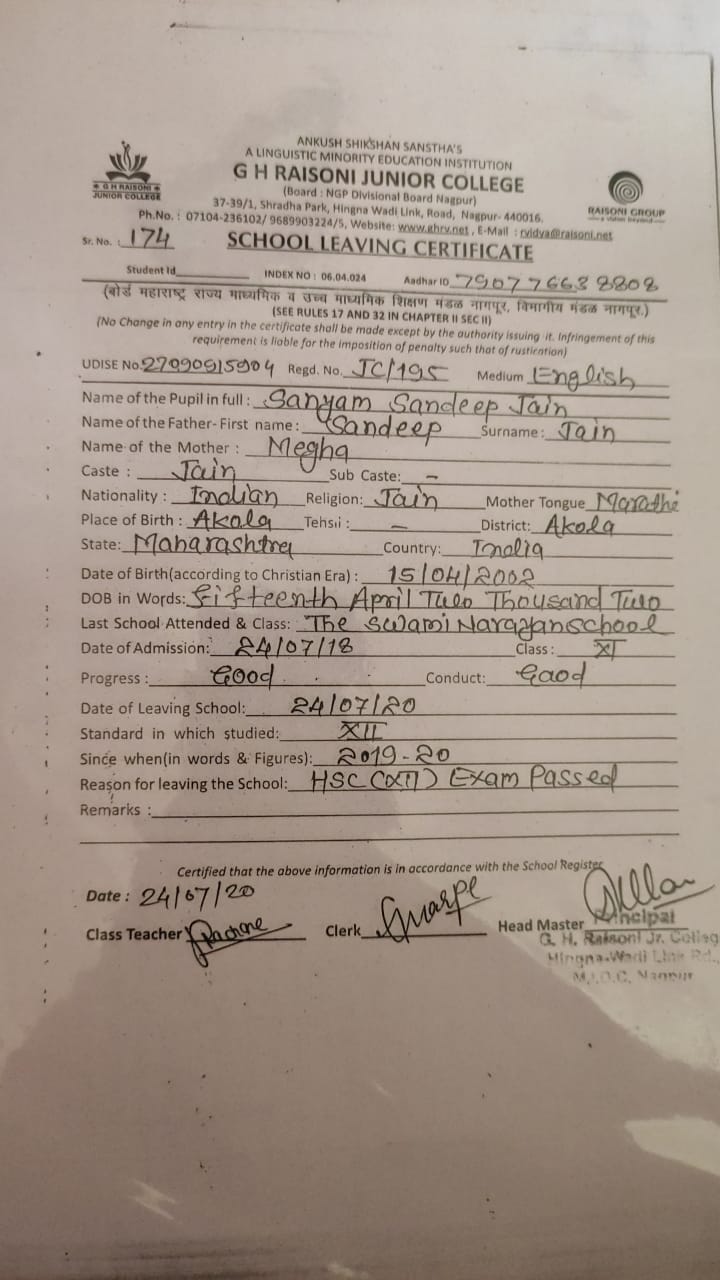 ANKUSH SHIKSHAN SANSTHA'S
A LINGUISTIC MINORITY EDUCATION INSTITUTION
G H RAISONI JUNIOR COLLEGE
(Board : NGP Divisional Board Nagpur)
37-39/1, Shradha Park, Hingna Wadi Link, Road, Nagpur- 440016.
Ph.No. : 07104-236102/ 9689903224/5, Website: www.ghrv.net , E-Mail : rvidya@raisoni.net
G H RAISONI
JUNIOR COLLEGE
RAISONI GROUP
Sr. No. : 174 SCHOOL LEAVING CERTIFICATE
Student Id INDEX NO : 06.04.024 Aadhar ID 790776638808
(बोर्ड महाराष्ट्र राज्य माध्यमिक व उच्च माध्यमिक शिक्षण मंडळ नागपूर, विभागीय मंडळ नागपूर.)
(SEE RULES 17 AND 32 IN CHAPTER II SEC II)
(No Change in any entry in the certificate shall be made except by the authority issuing it. Infringement of this
requirement is liable for the imposition of penalty such that of rustication)
UDISE No. 27090915904 Regd. No. JC/195 Medium English
Name of the Pupil in full : Sanyam Sandeep Jain
Name of the Father- First name : Sandeep Surname : Jain
Name of the Mother : Megha
Caste : Jain Sub Caste: –
Nationality : Indian Religion: Jain Mother Tongue Marathi
Place of Birth : Akola Tehsil : – District: Akola
State: Maharashtra Country: India
Date of Birth(according to Christian Era) : 15/04/2002
DOB in Words: fifteenth April Two Thousand Two
Last School Attended & Class: The Swami Narayan school
Date of Admission: 24/07/18 Class : XI
Progress : Good Conduct: Good
Date of Leaving School: 24/07/20
Standard in which studied: XII
Since when(in words & Figures): 2019-20
Reason for leaving the School: HSC (XII) Exam Passed
Remarks :
Certified that the above information is in accordance with the School Register
Date : 24/07/20
Class Teacher Clerk Head Master Principal
G. H. Raisoni Jr. Colleg
Hingna-Wadi Link Rd.,
M.I.D.C, Nagpur